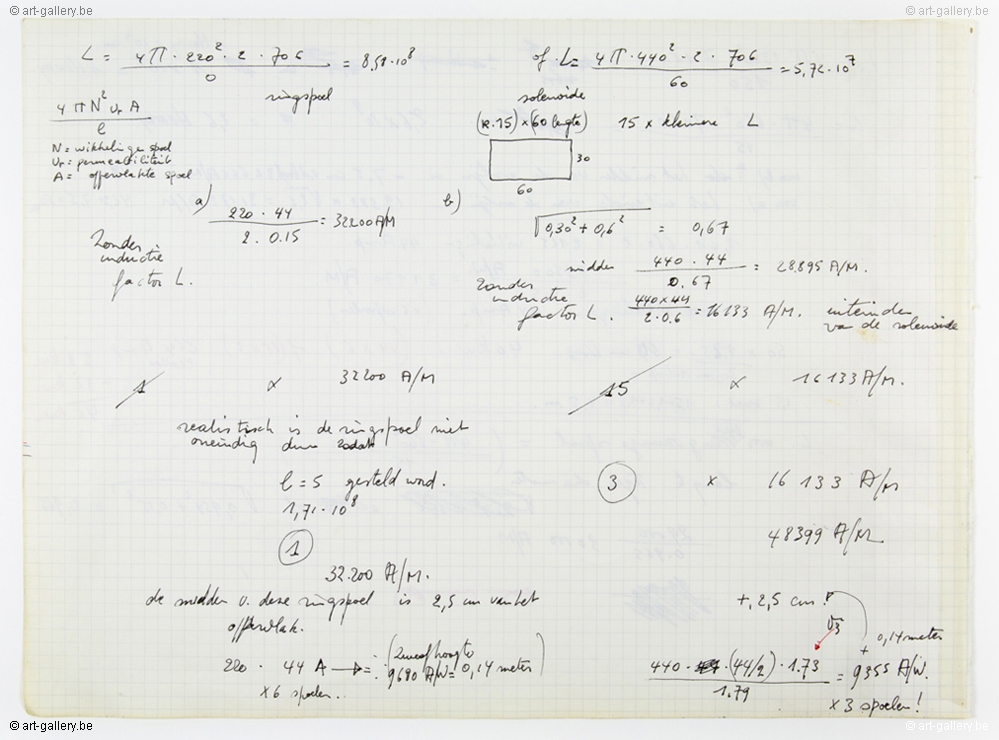 © art-gallery.be
© art-gallery.be
L = 4π · 220² · 2 · 706 / 0 = 8,58 · 10⁸
ringspoel
4πN² Ur A / l
N = wikkelingen spoel
Ur = permeabiliteit
A = opperwlakte spoel
a) 220 · 44 / 2 · 0.15 = 32200 A/M
Zonder
inductie
factor L.
of L = 4π · 440² · 2 · 706 / 60 = 5,72 · 10⁷
solenoïde
(R.15) × (60 lengte) 15 × kleinere L
30
60
b) √0,30² + 0,6² = 0,67
midden 440 · 44 / 0.67 = 28.895 A/M.
Zonder
inductie
factor L. 440×44 / 2·0.6 = 16133 A/M.
van de solenoïde
1 × 32200 A/M
15 × 16133 A/M.
realistisch is de ringspoel niet
oneindig dun zodat
l = 5 gesteld word.
1,71 · 10⁸
1
32.200 A/M.
3 × 16133 A/M
48399 A/M
de midden v. deze ringspoel is 2,5 cm van het
opperwlak.
220 · 44 A = (Zweefhoogte
9680 A/W = 0,14 meter)
× 6 spoelen.
+, 2,5 cm !
√3
0,14 meter
+
440 · (44/2) · 1.73 / 1.79 = 9355 A/W.
× 3 spoelen !
© art-gallery.be
© art-gallery.be